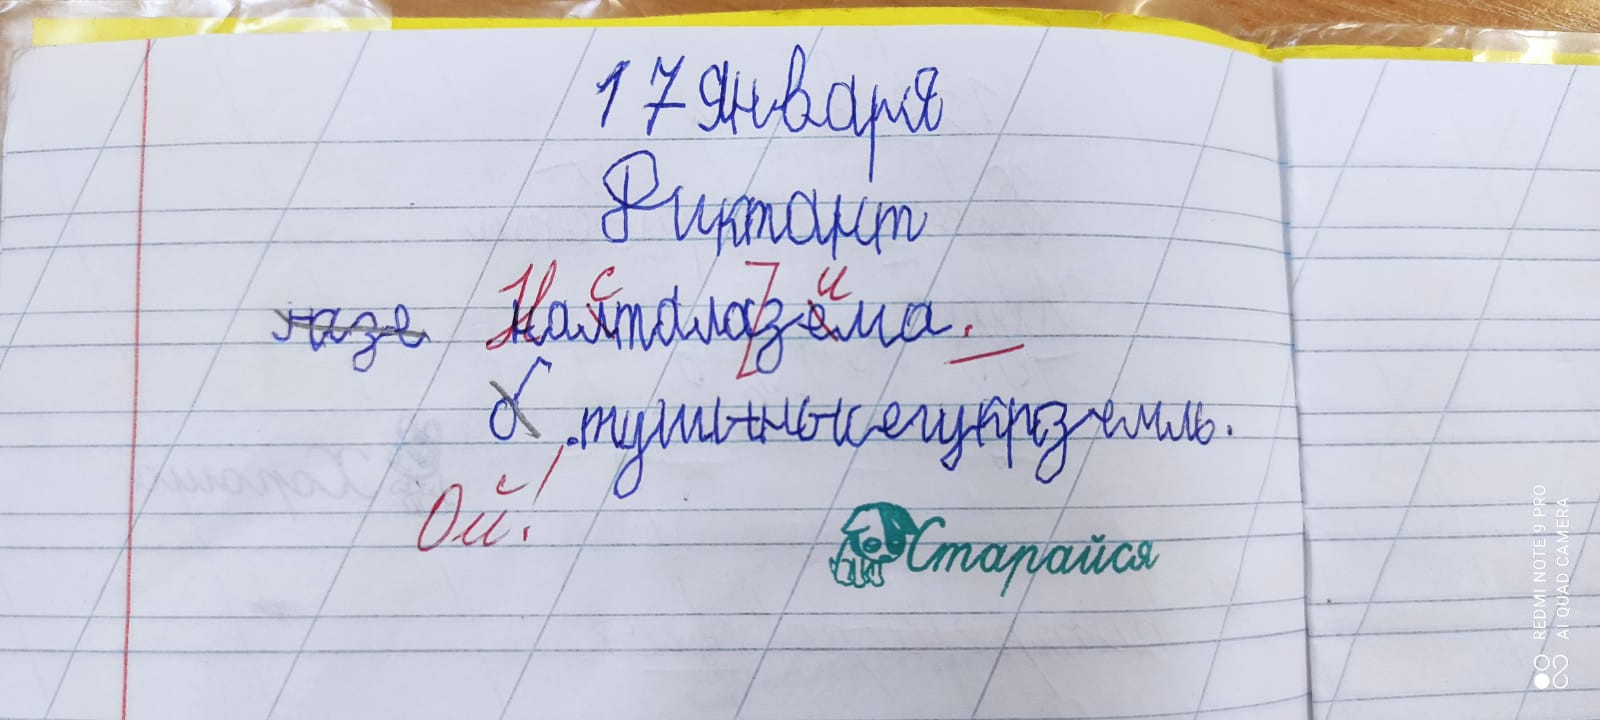 17 января
Диктант
назе Налталазема.
б .тушыныкегукргземль.
Ой!
Старайся
REDMI NOTE 9 PRO
AI QUAD CAMERA